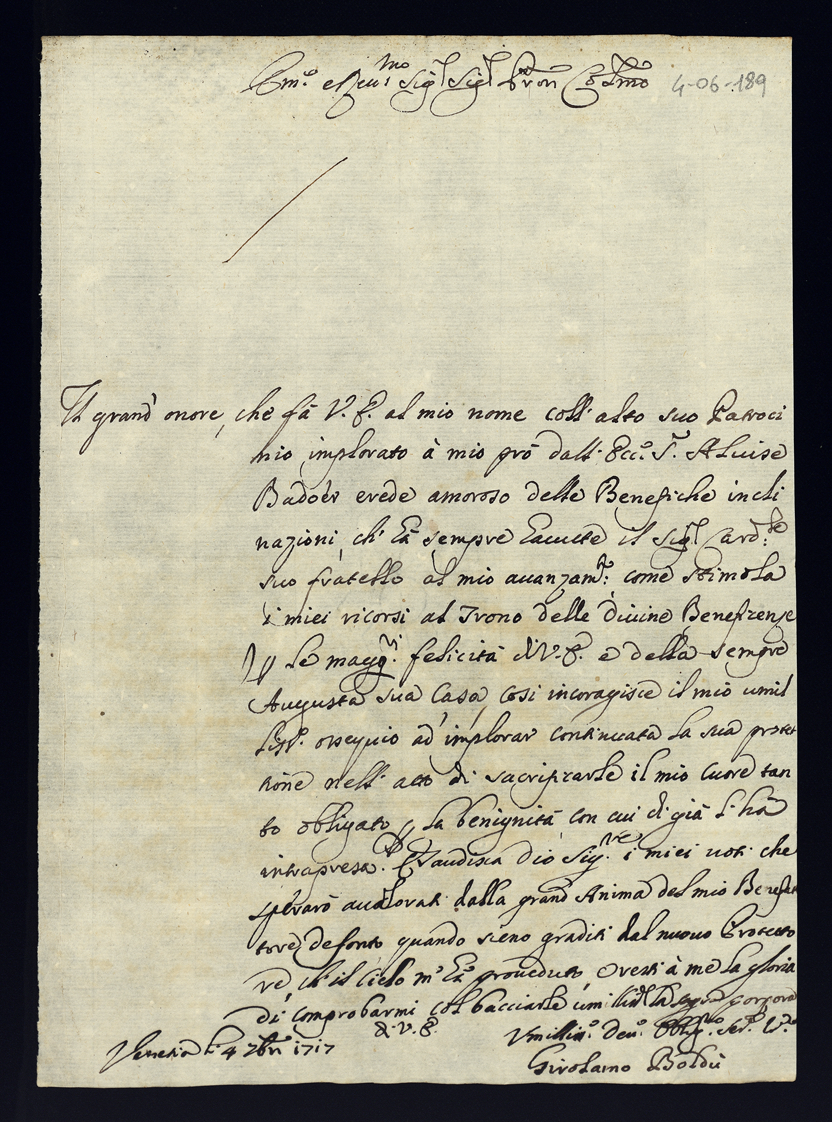 Em.º e Reu.mo Sig.r Sig.r P̃ron Col.mo 4-06-189
Il grand' onore, che fà V. E. al mio nome coll' alto suo Patroci
nio implorato à mio prò dall' Ecc.º S.r Aluise
Badoèr erede amoroso delle Benefiche incli
nazioni, ch' hà sempre hauute il Sig.r Card.le
suo fratello al mio auanzam.to: come stimola
i miei ricorsi al Trono delle diuine Beneficenze
p le magg.ri felicità di V. E. e della sempre
Augusta sua Casa, cosi incoragisce il mio umil
liss.º ossequio ad' implorar continuata la sua protet
tione nell' atto di sacrificarle il mio cuore tan
to obligato p la benignità con cui di già l' hà
intrapresa. Esaudisca Dio Sig.re i miei uoti che
sperarò aualorati dalla grand' Anima del mio Benefat
tore defonto quando sieno graditi dal nuouo Protetto
re ch' il Cielo m' hà proueduto, e resti à me la gloria
di comprobarmi col bacciarle umilim.te la sagra porpora
D. V. E.
Venezia li 4 7bre 1717
Vmilliss.º Deu.º Oblig.mo Ser.e
Girolamo Boldù